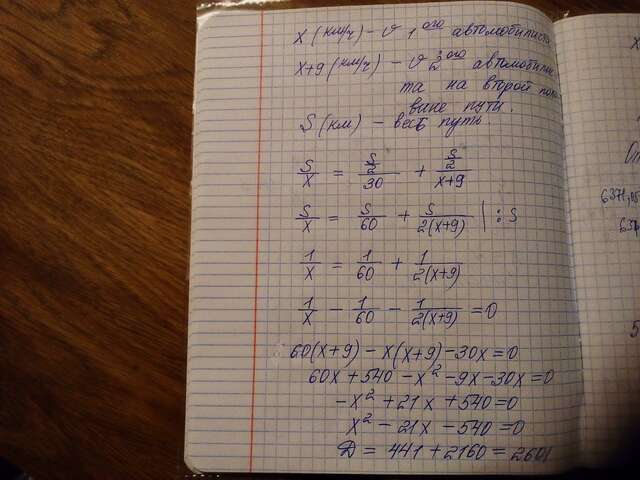 x (км/ч) – v 1 ого автомобилиста
x+9 (км/ч) – v 2 ого автомобилис
та на второй поло
вине пути.
S (км) – весь путь
S/x = (S/2)/30 + (S/2)/(x+9)
S/x = S/60 + S/(2(x+9)) | : S
1/x = 1/60 + 1/(2(x+9))
1/x – 1/60 – 1/(2(x+9)) = 0
60(x+9) – x(x+9) – 30x = 0
60x + 540 – x² – 9x – 30x = 0
–x² + 21x + 540 = 0
x² – 21x – 540 = 0
D = 441 + 2160 = 2601
x
6371,95
5